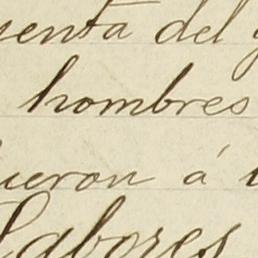 senta del
hombres
ueron á
Labores